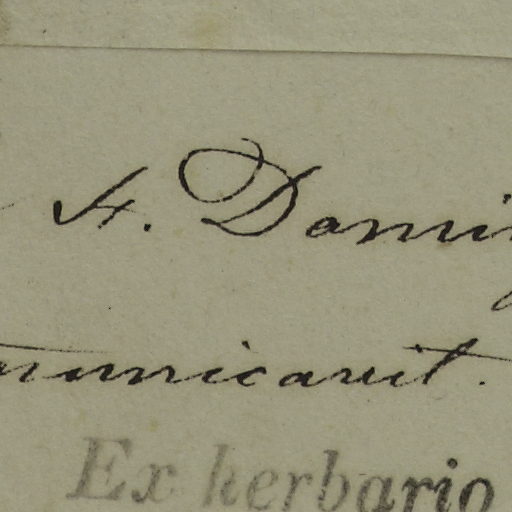 St. Domin
municavit.
Ex herbario